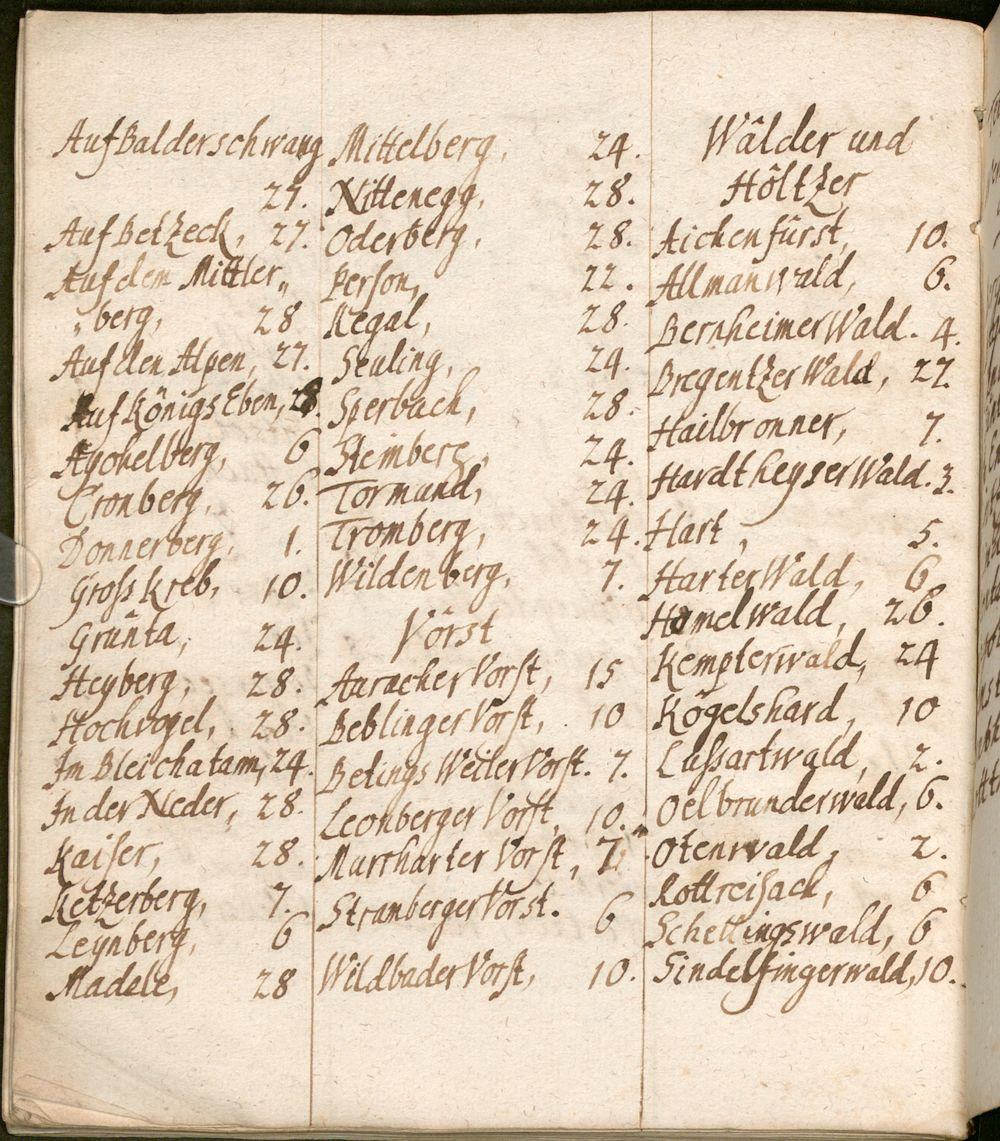 Auf Balderschwang
27.
Auf Betzeck, 27.
Auf dem Mittler„
„berg, 28
Auf den Alpen, 27.
Auf Königs Eben, 28.
Apohelberg, 6
Cronberg, 26.
Donnerberg, 1.
Groß Kreb, 10.
Grünta, 24.
Heyberg, 28.
Hochvogel, 28.
Im Bleichatann, 24.
In der Neder, 28.
Kaiser, 28.
Ketzerberg, 7.
Leynberg, 6
Madele, 28
Mittelberg, 24.
Nittenegg, 28.
Oderberg, 28.
Person, 22.
Regal, 28.
Seuling, 24.
Sperbach, 28.
Steinberg, 24.
Tormund, 24.
Tromberg, 24.
Wildenberg, 7.
Vörst
Auracher Vorst, 15
Beblinger Vorst, 10
Betings Weiler Vorst. 7.
Leonberger Vorst, 10.
Murrharter Vorst, 7.
Stranberger Vorst. 6
Wildbader Vorst, 10.
Wälder und
Höltzer
Aichenfürst, 10.
Allmanwald, 6.
Bernheimer Wald. 4.
Bregentzer Wald, 27.
Hailbronner, 7.
Hardtheyser Wald. 3.
Hart, 5.
Harter Wald, 6
Hamelwald, 26.
Kempterwald, 24
Kögelshard, 10
Lußartwald, 2.
Oelbrunderwald, 6.
Otenwald, 2.
Rottreisach, 6
Schettingswald, 6
Sindelfingerwald, 10.